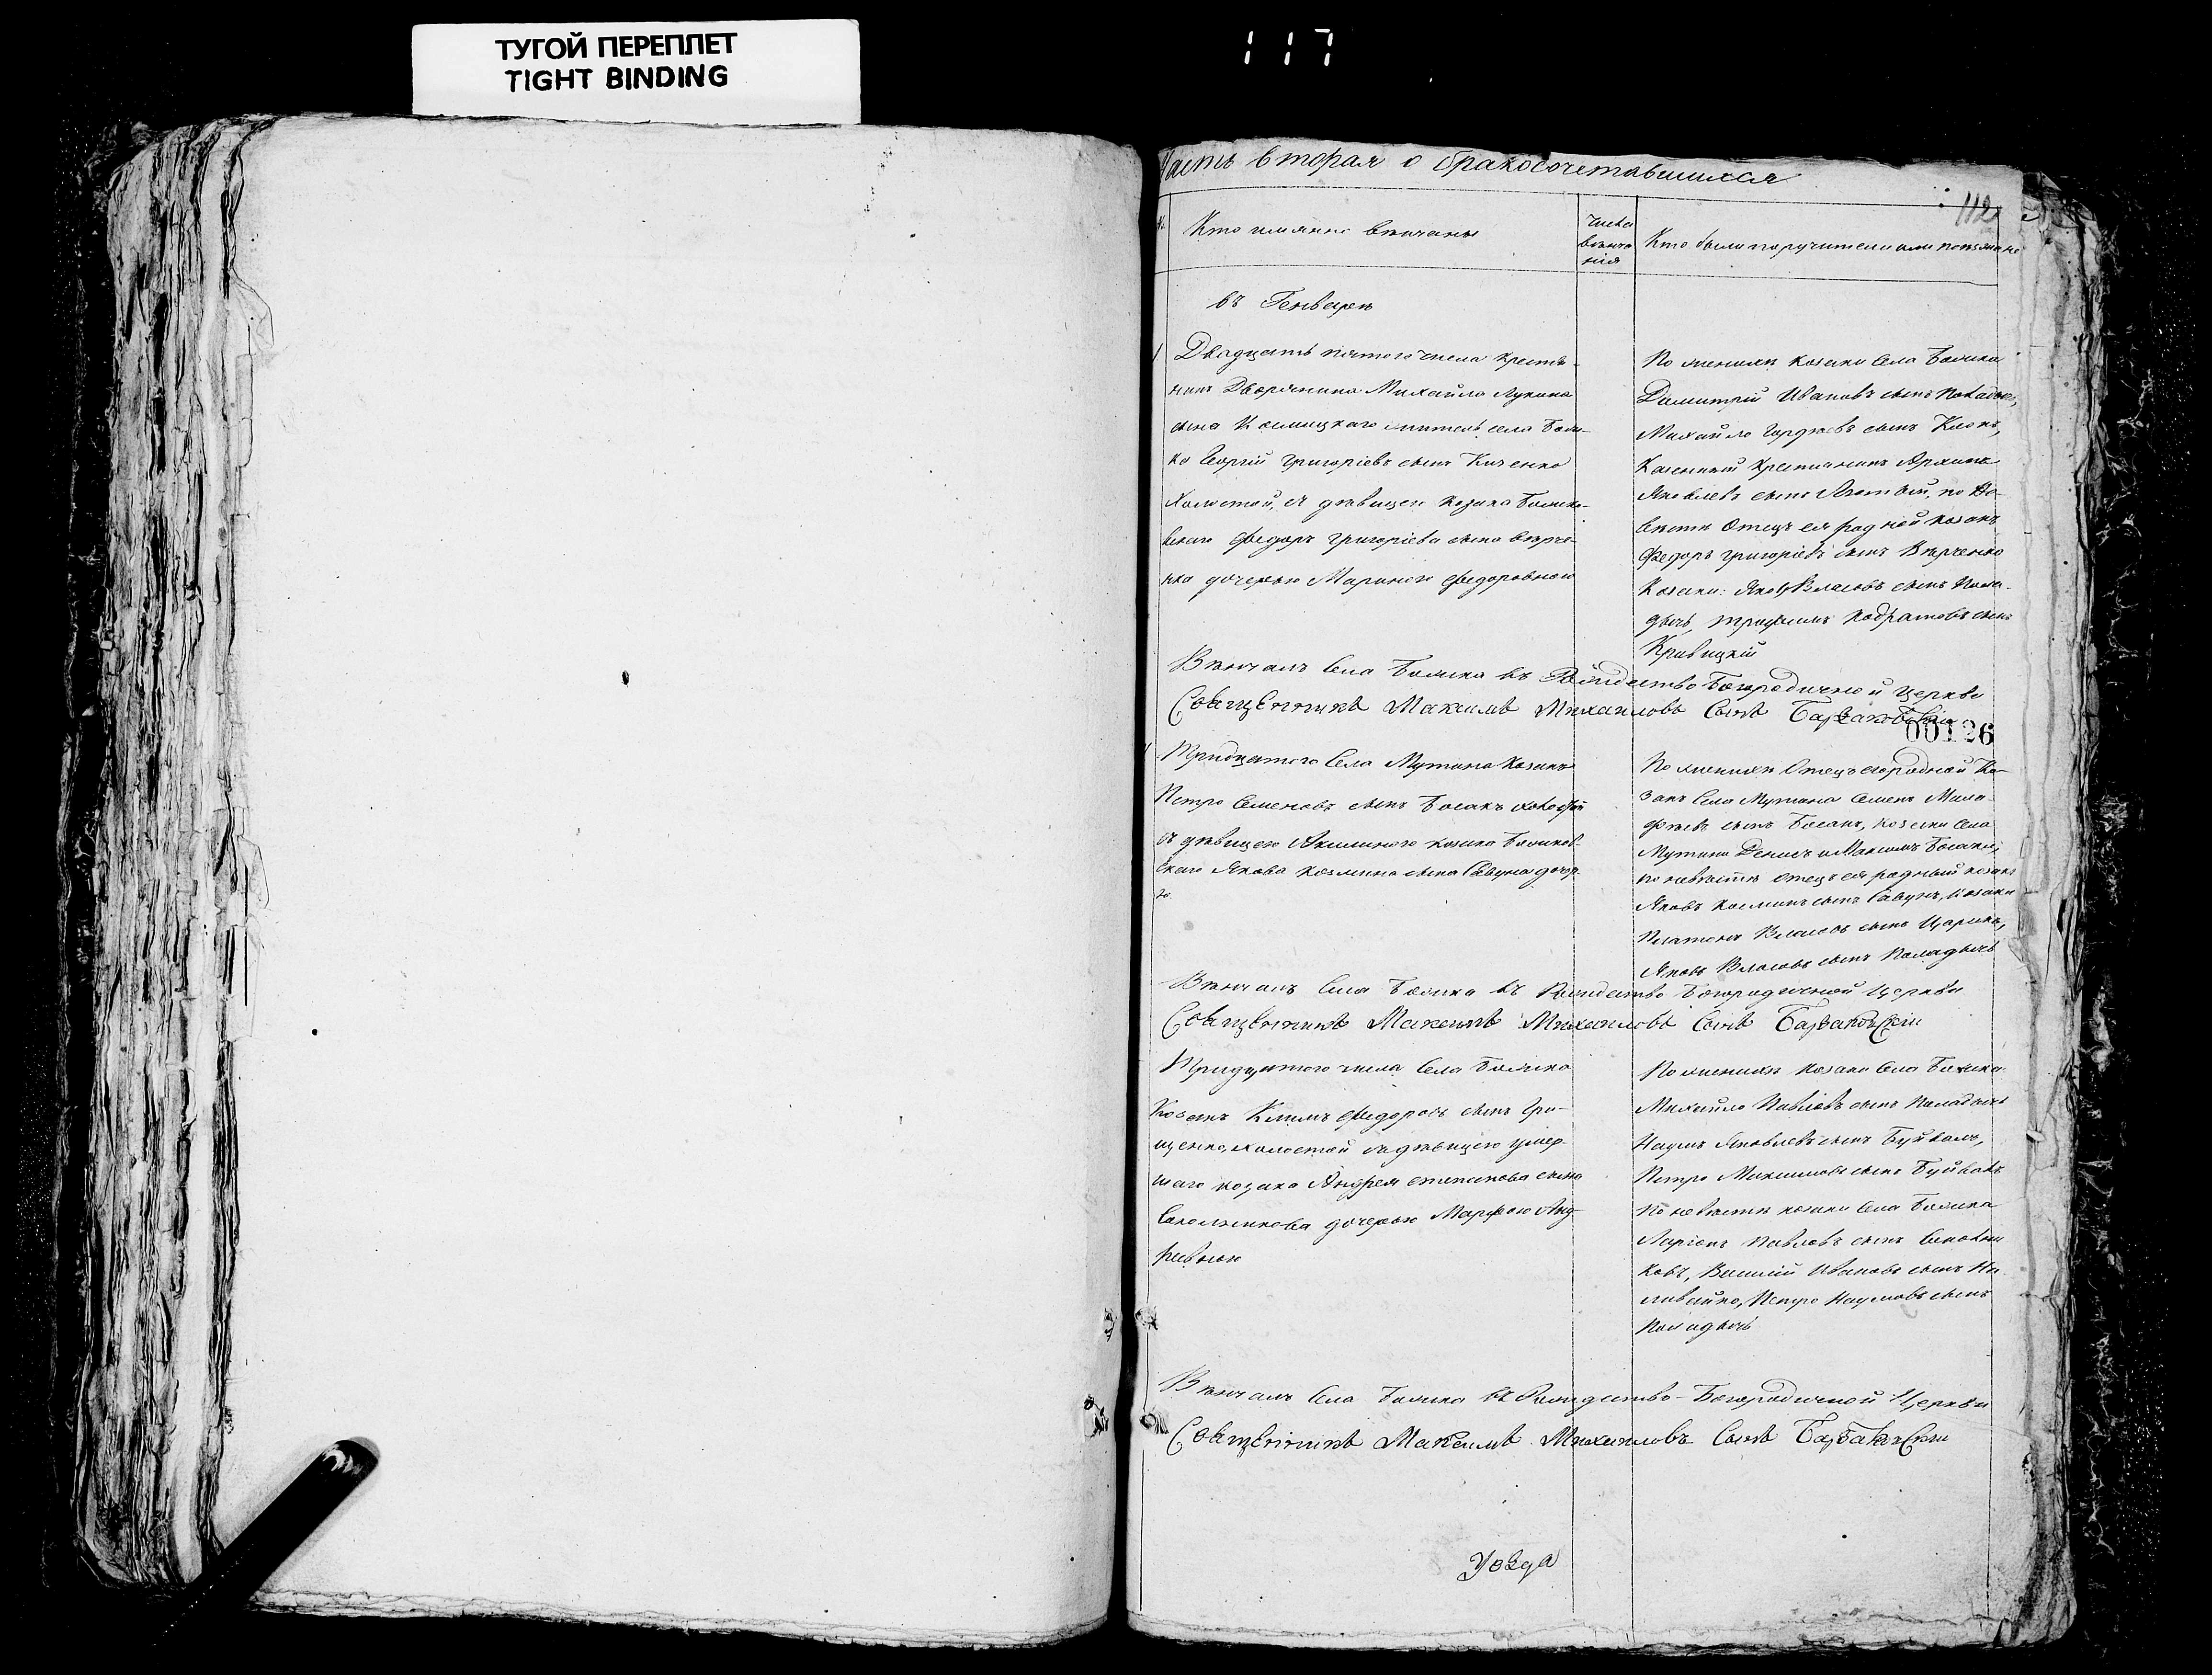 ТУГОЙ ПЕРЕПЛЕТ
TIGHT BINDING
117
Часть вторая о бракосочетавшихся
112
Кто имянно венчаны
числа
венча
нія
Кто были поручители или
въ Генваре
1
Двадцать пятого числа крестя-
нинъ Дворянина Михайла Лукина
сына житель села Божи-
ка Георгій Григоріевъ сынъ Кизенко
холостой, съ девицею козака Божико-
вскаго Федора Григоріева сына Верче-
нка дочерью Мариною Федоровною
По женихе козаки села Божика
Димитрій Ивановъ сынъ
Михайло сынъ
Казенный крестянинъ Архипъ
Яковлевъ сынъ по не-
весте отецъ ея родной козакъ
Федоръ Григоріевъ сынъ Верченко
Козаки: Яковъ Власовъ сынъ Пала-
дичь, Трофимъ Кодратовъ сынъ
Кривицкій
Венчалъ села Божика въ Рождество Богородичной церкви
Священникъ Максимъ Михаиловъ Сынъ
00126
Тридцятого села Мутина козакъ
Петро Семеновъ сынъ Босакъ холостой
съ девицею Акилиною козака Божиков-
скаго Якова Козмина сына Савуна дочер-
ю
По женихе отецъ его родной ко-
закъ села Мутина Семенъ
сынъ Босакъ, козаки села
Мутина Денисъ и Максимъ Босаки,
по невесте отецъ ея родный козакъ
Яковъ Козминъ сынъ Савунъ, козаки
Платонъ Власовъ сынъ Царикъ,
Яковъ Власовъ сынъ Паладичь
Венчалъ села Божика въ Рождество Богородичной церкви
Священникъ Максимъ Михаиловъ Сынъ
Тридцятого числа села Божика
Козакъ Климъ Федоровъ сынъ Гри-
щенко, холостой съ девицею умер-
шаго козака Андрея Степанова сына
дочерью Марфою Анд-
реевною
По женихе козаки села Божика
Михайло Павловъ сынъ Паладичь
Наумъ Яковлевъ сынъ Буйвалъ,
Петро Максимовъ сынъ
По невесте козаки села Божика
Ларіонъ Павловъ сынъ
ковъ, Василій Ивановъ сынъ На-
ливайко, Петро Наумовъ сынъ
Паладичь
Венчалъ села Божика въ Рождество-Богородичной Церкви
Священникъ Максимъ Михаиловъ Сынъ
Уезда